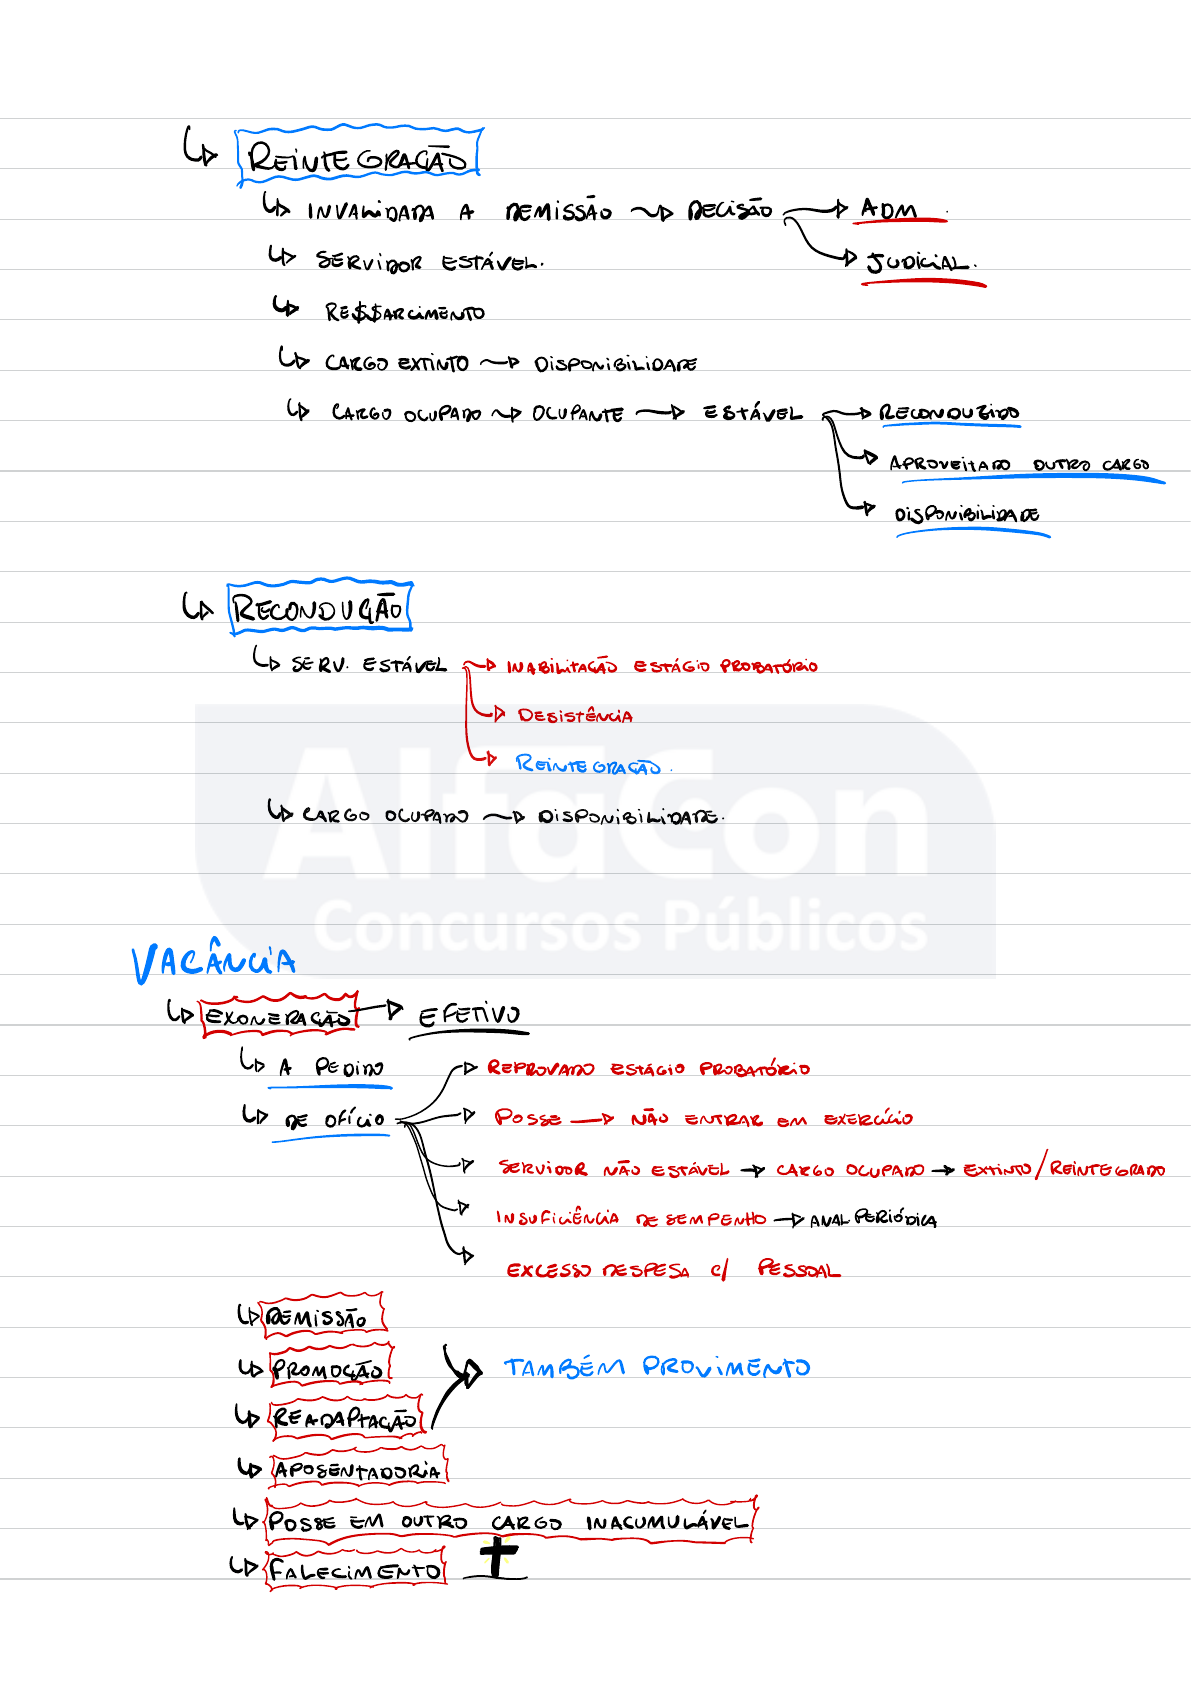 REINTEGRAÇÃO
INVALIDADA A DEMISSÃO DECISÃO ADM.
JUDICIAL.
SERVIDOR ESTÁVEL.
RE$$ARCIMENTO
CARGO EXTINTO DISPONIBILIDADE
CARGO OCUPADO OCUPANTE ESTÁVEL RECONDUZIDO
APROVEITADO OUTRO CARGO
DISPONIBILIDADE
RECONDUÇÃO
SERV. ESTÁVEL INABILITAÇÃO ESTÁGIO PROBATÓRIO
DESISTÊNCIA
REINTEGRAÇÃO.
CARGO OCUPADO DISPONIBILIDADE.
AlfaCon
Concursos Públicos
VACÂNCIA
EXONERAÇÃO EFETIVO
A PEDIDO
DE OFÍCIO
REPROVADO ESTÁGIO PROBATÓRIO
POSSE NÃO ENTRAR EM EXERCÍCIO
SERVIDOR NÃO ESTÁVEL CARGO OCUPADO EXTINTO/REINTEGRADO
INSUFICIÊNCIA DESEMPENHO ANAL PERIÓDICA
EXCESSO DESPESA C/ PESSOAL
DEMISSÃO
PROMOÇÃO
TAMBÉM PROVIMENTO
READAPTAÇÃO
APOSENTADORIA
POSSE EM OUTRO CARGO INACUMULÁVEL
FALECIMENTO